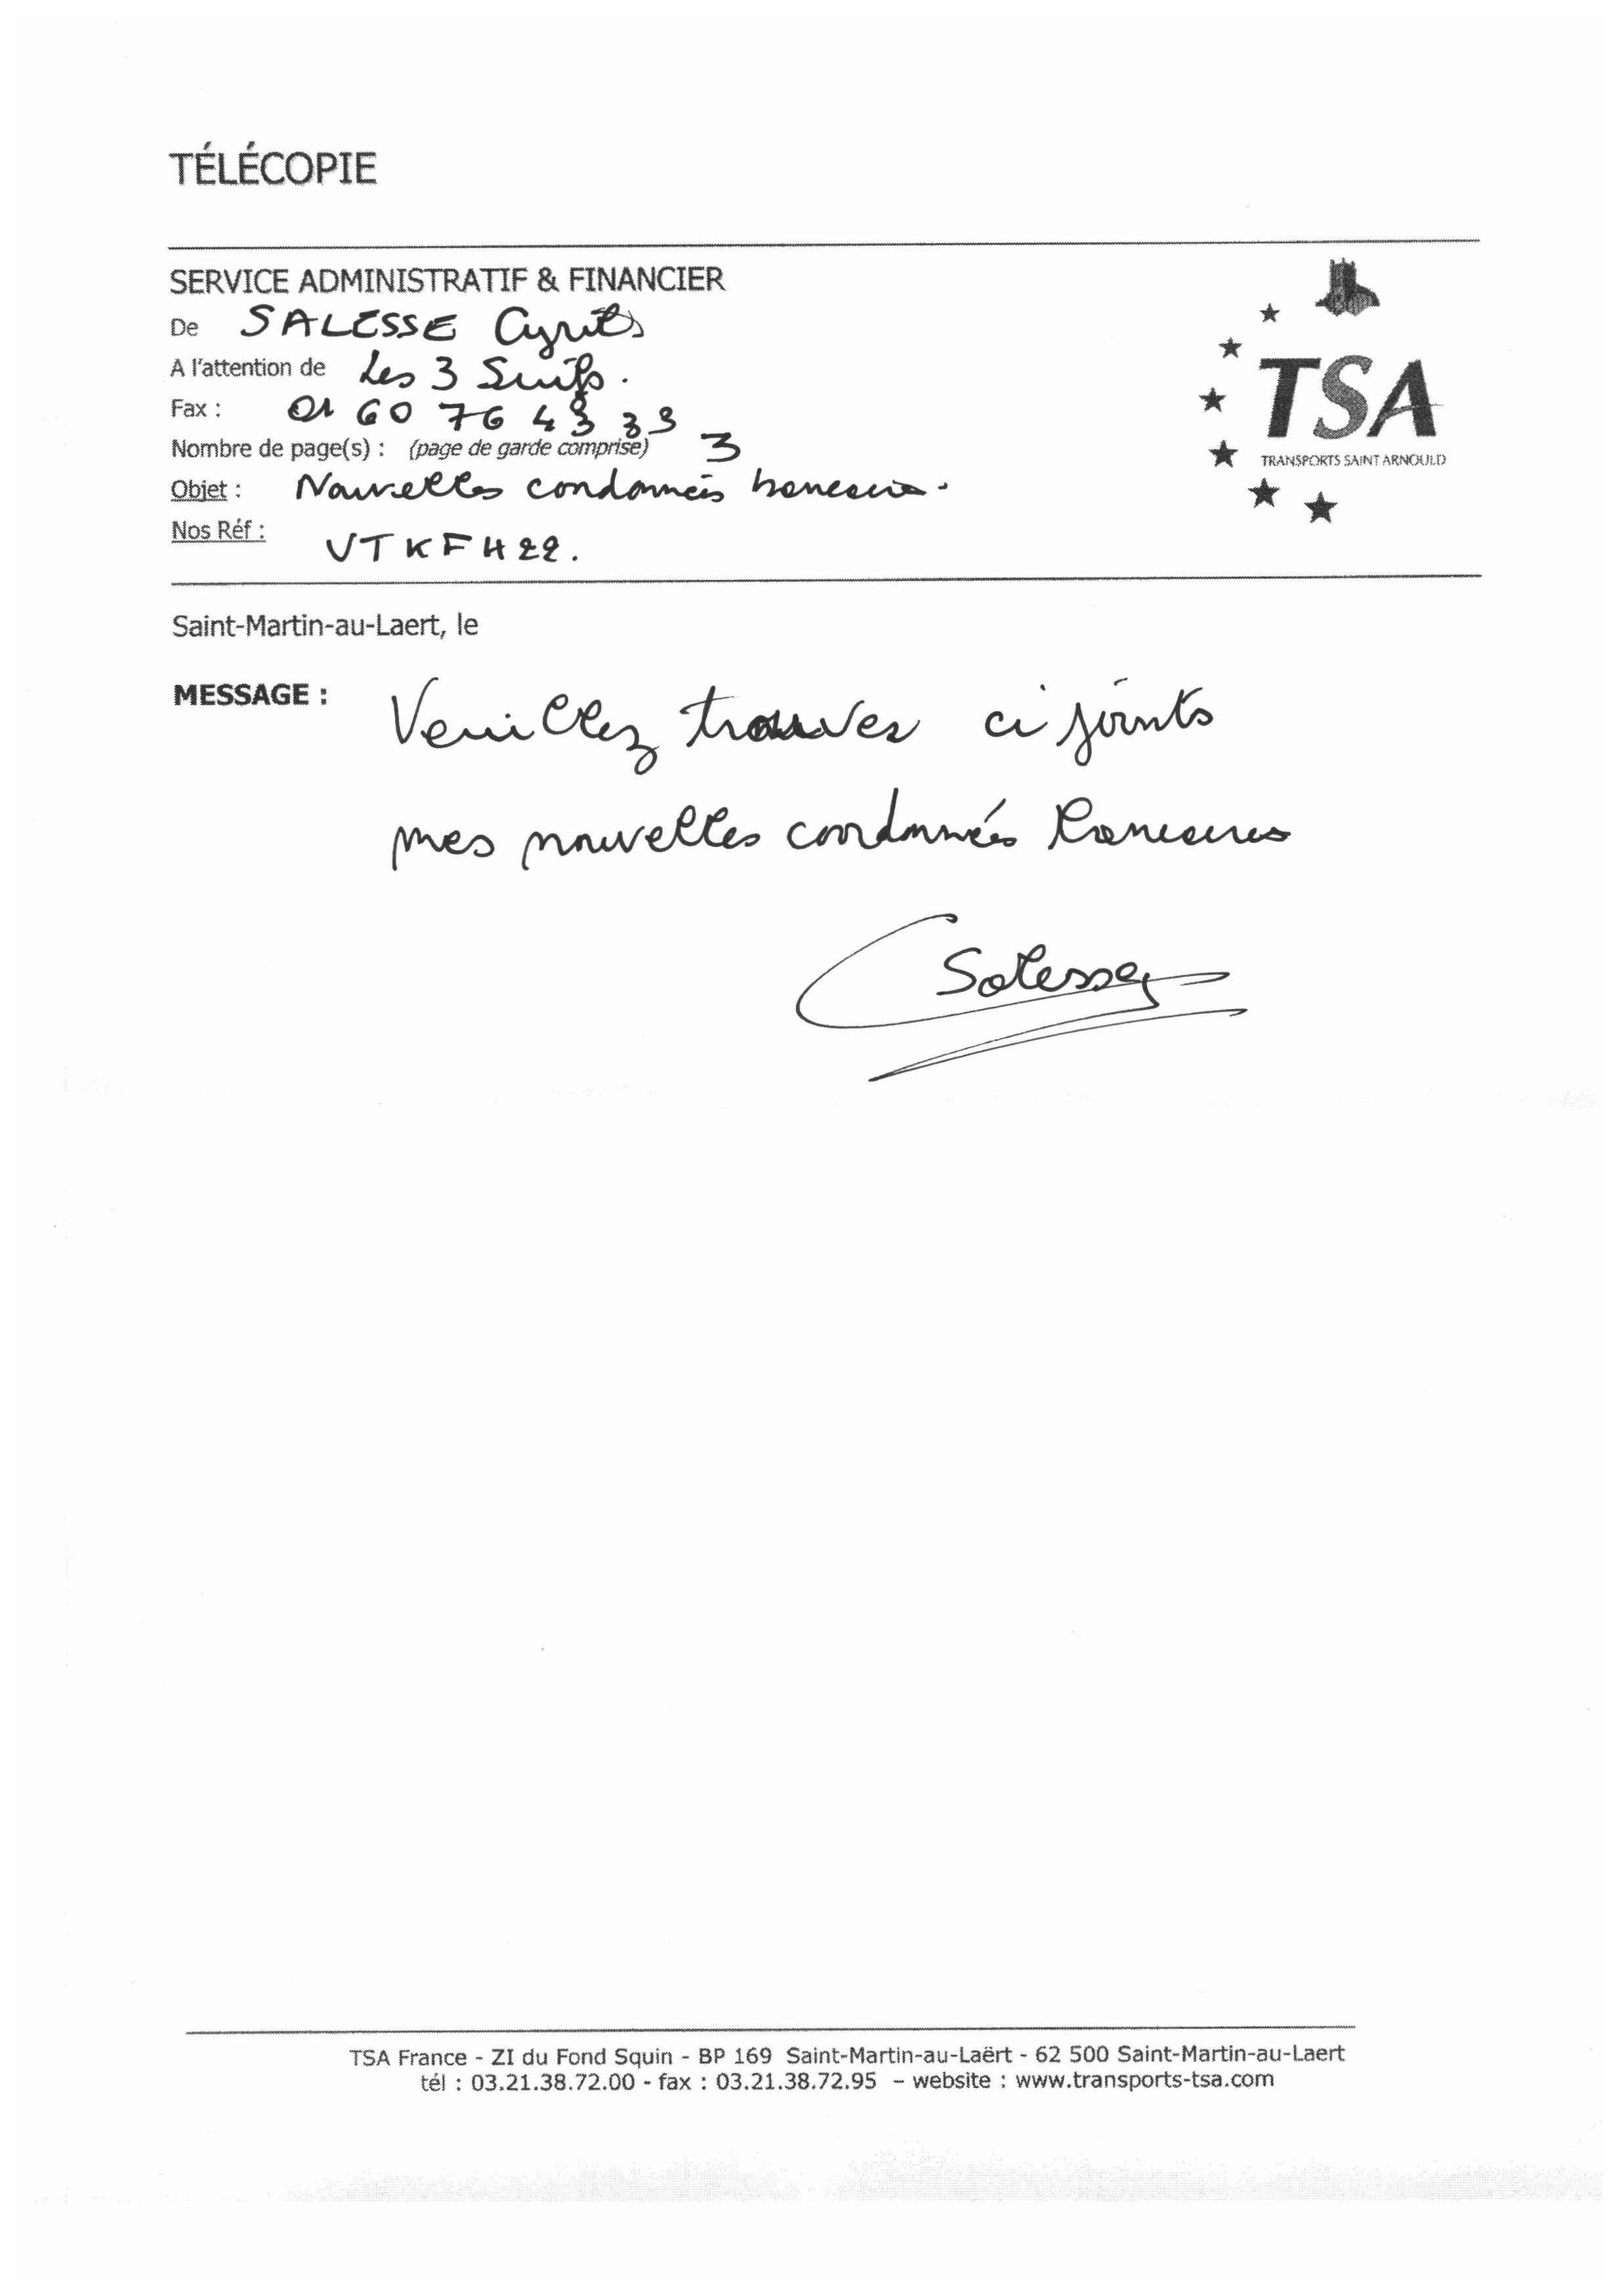 TÉLÉCOPIE
SERVICE ADMINISTRATIF & FINANCIER
De SALESSE Cyrille
A l'attention de Les 3 Suifs.
Fax : 01 60 76 43 33
Nombre de page(s) : (page de garde comprise) 3
Objet : Nouvelles condonnées bancaire.
Nos Réf : VTKFH22.
TSA
TRANSPORTS SAINT ARNOULD
Saint-Martin-au-Laert, le
MESSAGE : Veuillez trouver ci joints
mes nouvelles cordonnées bancaires
CSalesse
TSA France - ZI du Fond Squin - BP 169 Saint-Martin-au-Laërt - 62 500 Saint-Martin-au-Laert
tél : 03.21.38.72.00 - fax : 03.21.38.72.95 – website : www.transports-tsa.com